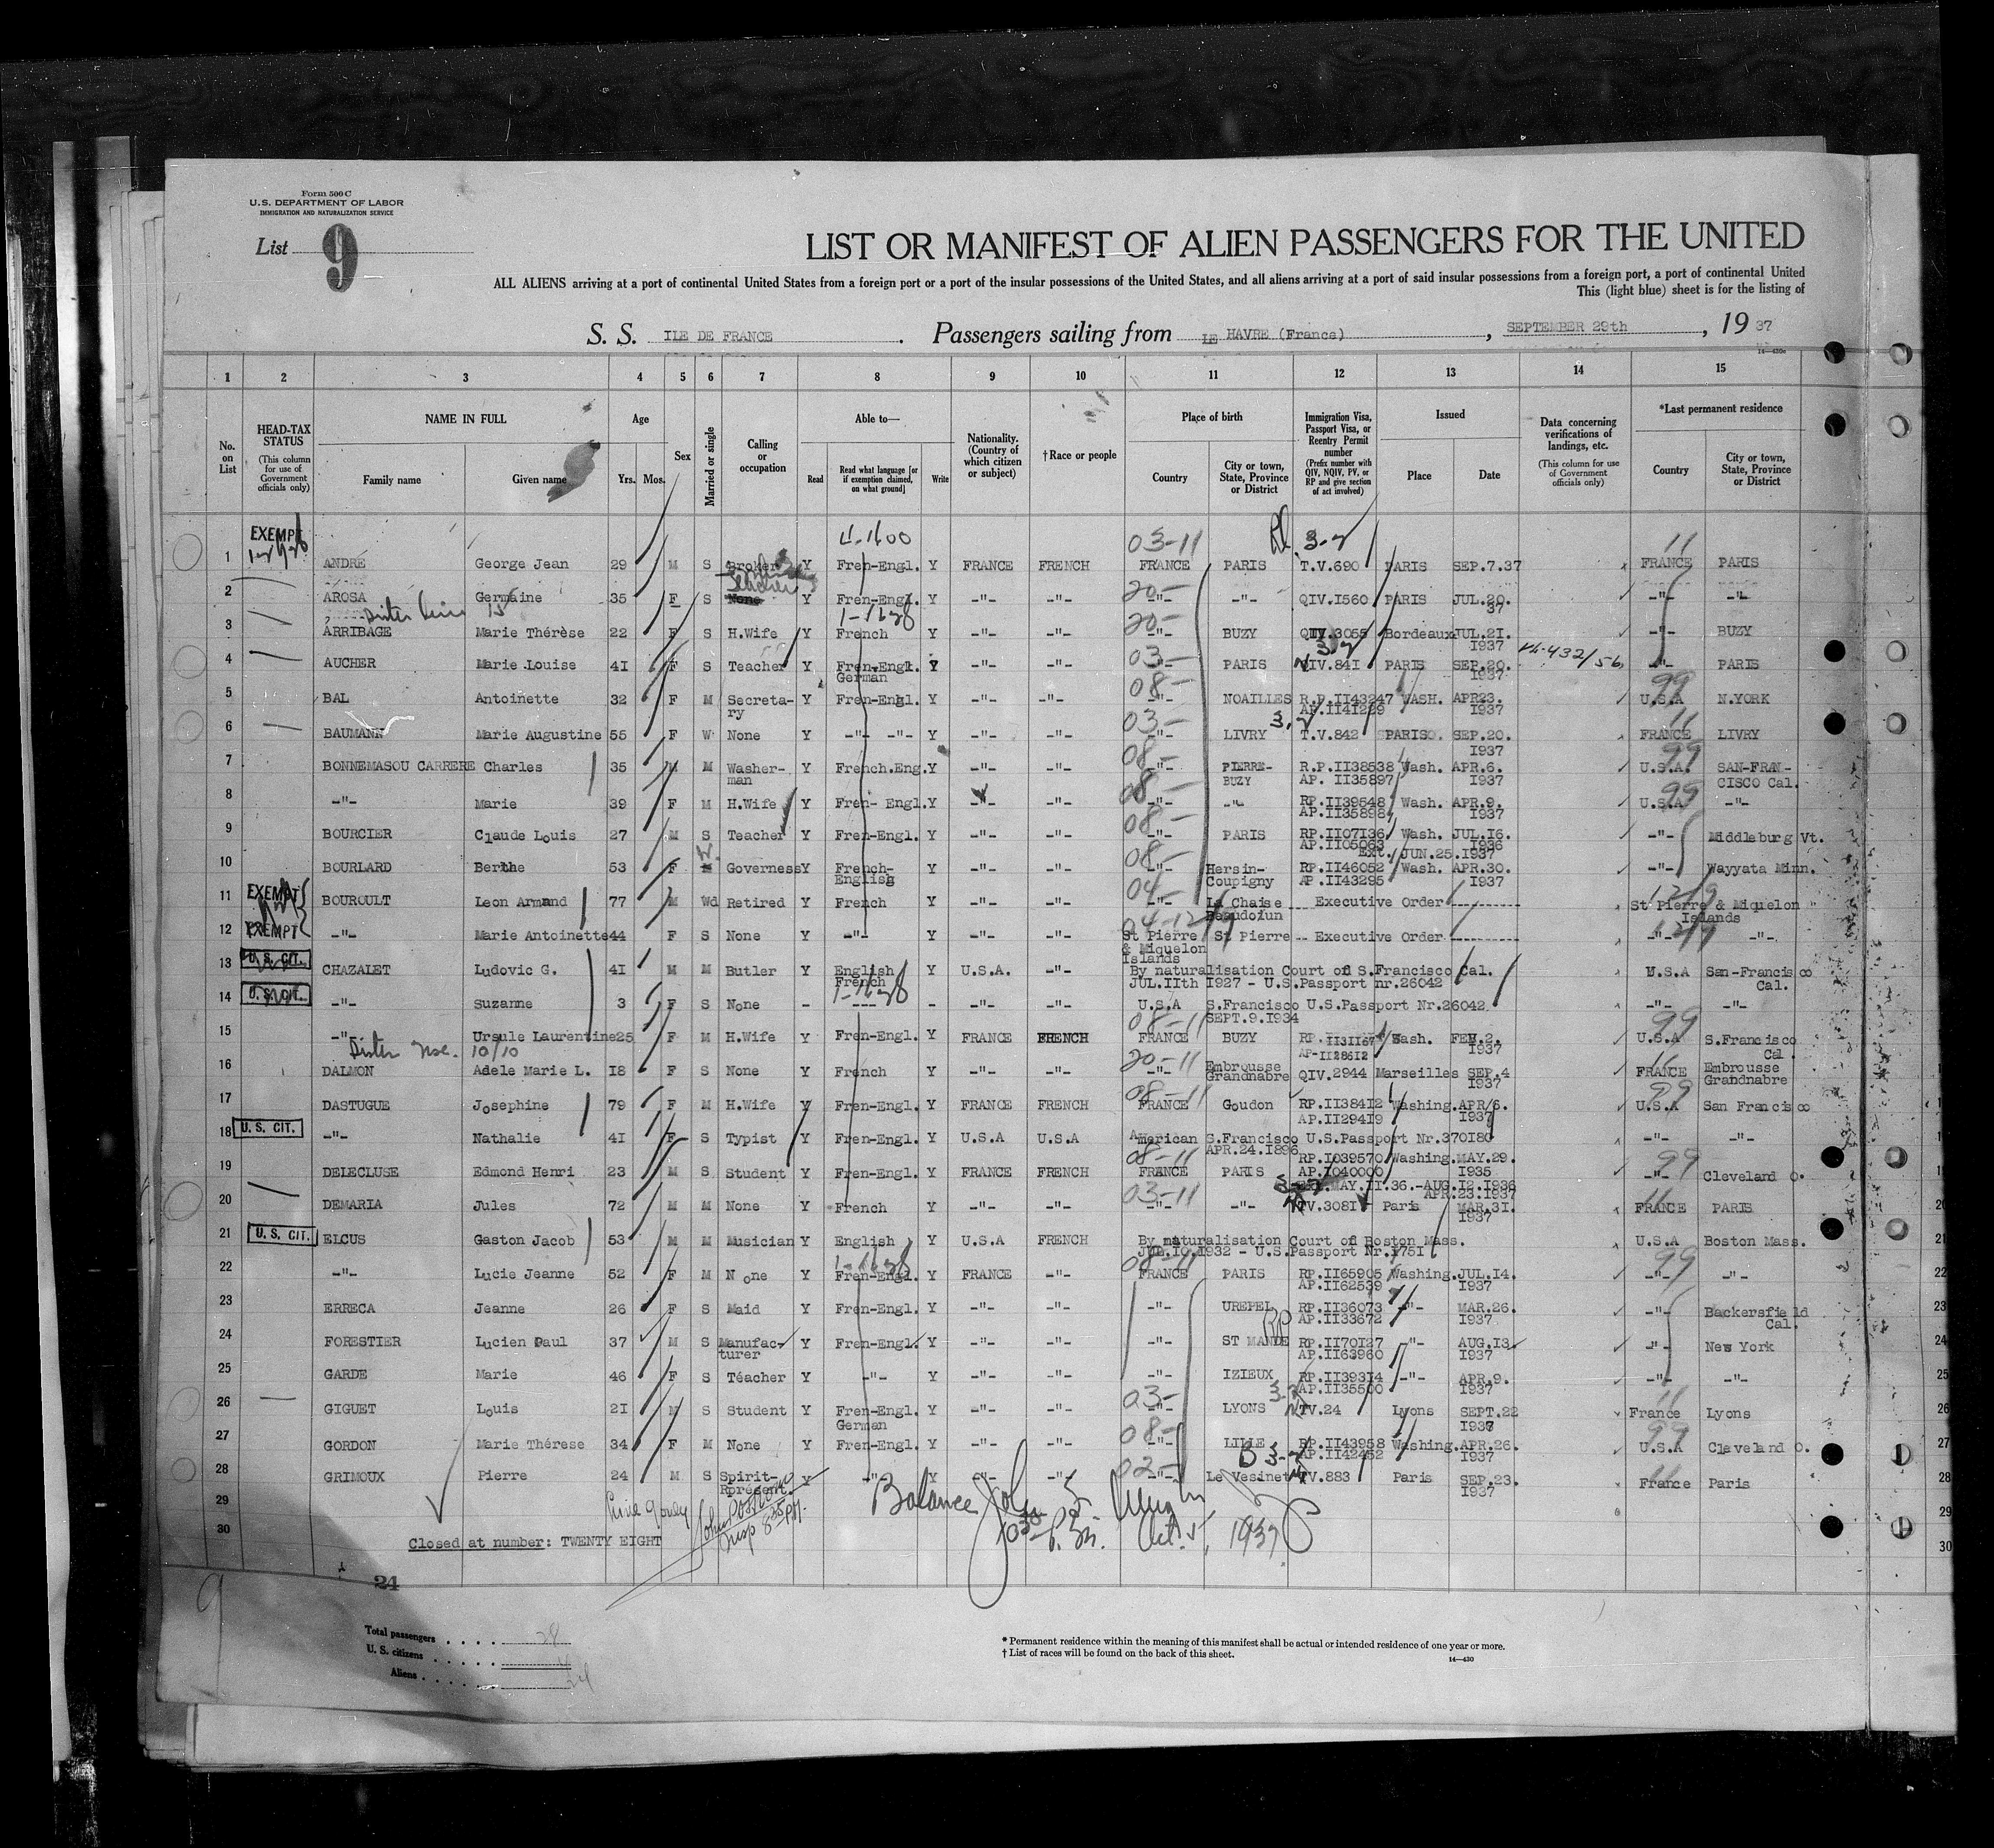 Form 500 C
U.S. DEPARTMENT OF LABOR
IMMIGRATION AND NATURALIZATION SERVICE
List 9
LIST OR MANIFEST OF ALIEN PASSENGERS FOR THE UNITED
ALL ALIENS arriving at a port of continental United States from a foreign port or a port of the insular possessions of the United States, and all aliens arriving at a port of said insular possessions from a foreign port, a port of continental United
This (light blue) sheet is for the listing of
S. S. ILE DE FRANCE. Passengers sailing from LE HAVRE (France), SEPTEMBER 29th, 1937
1 2 3 4 5 6 7 8 9 10 11 12 13 14 15
No. on List
HEAD-TAX STATUS (This column for use of Government officials only)
NAME IN FULL Family name Given name
Age Yrs. Mos.
Sex
Married or single
Calling or occupation
Able to— Read Read what language [or if exemption claimed, on what ground] Write
Nationality. (Country of which citizen or subject)
†Race or people
Place of birth Country City or town, State, Province or District
Immigration Visa, Passport Visa, or Reentry Permit number (Prefix number with QIV, NQIV, PV, or RP and give section of act involved)
Issued Place Date
Data concerning verifications of landings, etc. (This column for use of Government officials only)
*Last permanent residence Country City or town, State, Province or District
1 EXEMPT ANDRE George Jean 29 M S Broker Y Fren-Engl. Y FRANCE FRENCH 03-11 FRANCE PARIS T.V.690 PARIS SEP.7.37 11 FRANCE PARIS
2 AROSA Germaine 35 F S None Y Fren-Engl. Y -"- -"- 20- -"- -"- QIV.I560 PARIS JUL.20. 37 -"- -"-
3 ARRIBAGE Marie Thérèse 22 F S H.Wife Y French Y -"- -"- 20- -"- BUZY QIV.3055 Bordeaux JUL.2I. I937 -"- BUZY
4 AUCHER Marie Louise 4I F S Teacher Y Fren-Engl. German Y -"- -"- 03- -"- PARIS IV.84I PARIS SEP.20. I937 -"- PARIS
5 BAL Antoinette 32 F M Secretary Y Fren-Engl. Y -"- -"- 08- -"- NOAILLES R.P.II43247 AP.II41229 WASH. APR23. I937 99 U.S.A N.YORK
6 BAUMANN Marie Augustine 55 F W None Y -"- -"- Y -"- -"- 03- -"- LIVRY T.V.842 PARIS SEP.20. I937 11 FRANCE LIVRY
7 BONNEMASOU CARRERE Charles 35 M M Washer-man Y French.Eng. Y -"- -"- 08- -"- PIERRE-BUZY R.P.II38538 AP. II35897 Wash. APR.6. I937 99 U.S.A. SAN-FRAN-CISCO Cal.
8 -"- Marie 39 F M H.Wife Y Fren- Engl. Y -"- -"- 08- -"- -"- RP.II39548 AP.II35898 Wash. APR.9. I937 99 U.S.A -"-
9 BOURCIER Claude Louis 27 M S Teacher Y Fren-Engl. Y -"- -"- 08- -"- PARIS RP.II07I36 AP.II05063 Wash. JUL.I6. I936 Ext. JUN.25.I937 -"- Middleburg Vt.
10 BOURLARD Berthe 53 F M Governess Y French-English Y -"- -"- 08- -"- Hersin-Coupigny RP.II46052 AP.II43295 Wash. APR.30. I937 -"- Wayyata Minn.
11 EXEMPT BOUROULT Leon Armand 77 M Wd Retired Y French Y -"- -"- 04- -"- La Chaise Beaudoiun Executive Order St Pierre & Miquelon Islands
12 EXEMPT -"- Marie Antoinette 44 F S None Y -"- Y -"- -"- St Pierre & Miquelon Islands St Pierre Executive Order -"- -"-
13 U.S. CIT. CHAZALET Ludovic G. 4I M M Butler Y English French Y U.S.A. -"- By naturalisation Court of S.Francisco Cal. JUL.IIth I927 - U.S.Passport nr.26042 U.S.A San-Francisco Cal.
14 U.S. CIT. -"- Suzanne 3 F S None - --- - -"- -"- U.S.A S.Francisco SEPT.9.I934 U.S.Passport Nr.26042 -"- -"-
15 -"- Ursule Laurentine 25 F M H.Wife Y Fren-Engl. Y FRANCE FRENCH 08-11 FRANCE BUZY RP.II3II67 AP-II286I2 Wash. FEB.2. I937 99 U.S.A S.Francisco Cal.
16 DALMON Adele Marie L. I8 F S None Y French Y -"- -"- 20-11 -"- Embrousse Grandnabre QIV.2944 Marseilles SEP.4 I937 11 FRANCE Embrousse Grandnabre
17 DASTUGUE Josephine 79 F M H.Wife Y Fren-Engl. Y FRANCE FRENCH 08-11 FRANCE Goudon RP.II384I2 AP.II294I9 Washing. APR/6. I937 99 U.S.A San Francisco
18 U.S. CIT. -"- Nathalie 4I F S Typist Y Fren-Engl. Y U.S.A U.S.A American S.Francisco APR.24.I896 U.S.Passport Nr.370I80 -"- -"-
19 DELECLUSE Edmond Henri 23 M S Student Y Fren-Engl. Y FRANCE FRENCH 08-11 FRANCE PARIS RP.I039570 AP.I040000 Washing. MAY.29. I935 MAY.II.36.-AUG.I2.I936 APR.23.I937 99 -"- Cleveland O.
20 DEMARIA Jules 72 M M None Y French Y -"- -"- 03-11 -"- -"- TV.308I Paris MAR.3I. I937 11 FRANCE PARIS
21 U.S. CIT. ELCUS Gaston Jacob 53 M M Musician Y English Y U.S.A FRENCH By naturalisation Court of Boston Mass. JUN.IO.I932 - U.S.Passport Nr.I75I U.S.A Boston Mass.
22 -"- Lucie Jeanne 52 F M None Y Fren-Engl. Y FRANCE -"- 08-11 FRANCE PARIS RP.II65905 AP.II62539 Washing. JUL.I4. I937 99 -"- -"-
23 ERRECA Jeanne 26 F S Maid Y Fren-Engl. Y -"- -"- -"- UREPEL RP.II36073 AP.II33672 -"- MAR.26. I937 -"- Backersfield Cal.
24 FORESTIER Lucien Paul 37 M S Manufac-turer Y Fren-Engl. Y -"- -"- -"- ST MANDE RP.II70I27 AP.II63960 -"- AUG.I3 I937 -"- New York
25 GARDE Marie 46 F S Téacher Y -"- Y -"- -"- -"- IZIEUX RP.II393I4 AP.II35500 -"- APR.9. I937 -"- -"-
26 GIGUET Louis 2I M S Student Y Fren-Engl. German Y -"- -"- 03- -"- LYONS TV.24 Lyons SEPT.22 I937 11 France Lyons
27 GORDON Marie Thérese 34 F M None Y Fren-Engl. Y -"- -"- 08- -"- LILLE RP.II43958 AP.II42452 Washing. APR.26. I937 99 U.S.A Cleveland O.
28 GRIMOUX Pierre 24 M S Spirit-Rprésent. Y -"- Y -"- -"- 02- -"- Le Vesinet TV.883 Paris SEP.23. I937 11 France Paris
29
30 Closed at number: TWENTY EIGHT
Balance John
1030 P.M. Oct. 5, 1937
24
9
Total passengers 28
U. S. citizens 4
Aliens 24
* Permanent residence within the meaning of this manifest shall be actual or intended residence of one year or more.
† List of races will be found on the back of this sheet.
14—430